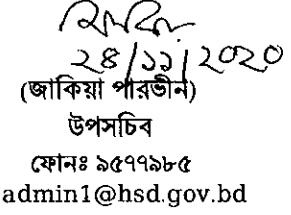 ২৪/১১/২০২০
(জাকিয়া পারভীন)
উপসচিব
ফোনঃ ৯৫৭৭৯৮৫
admin1@hsd.gov.bd